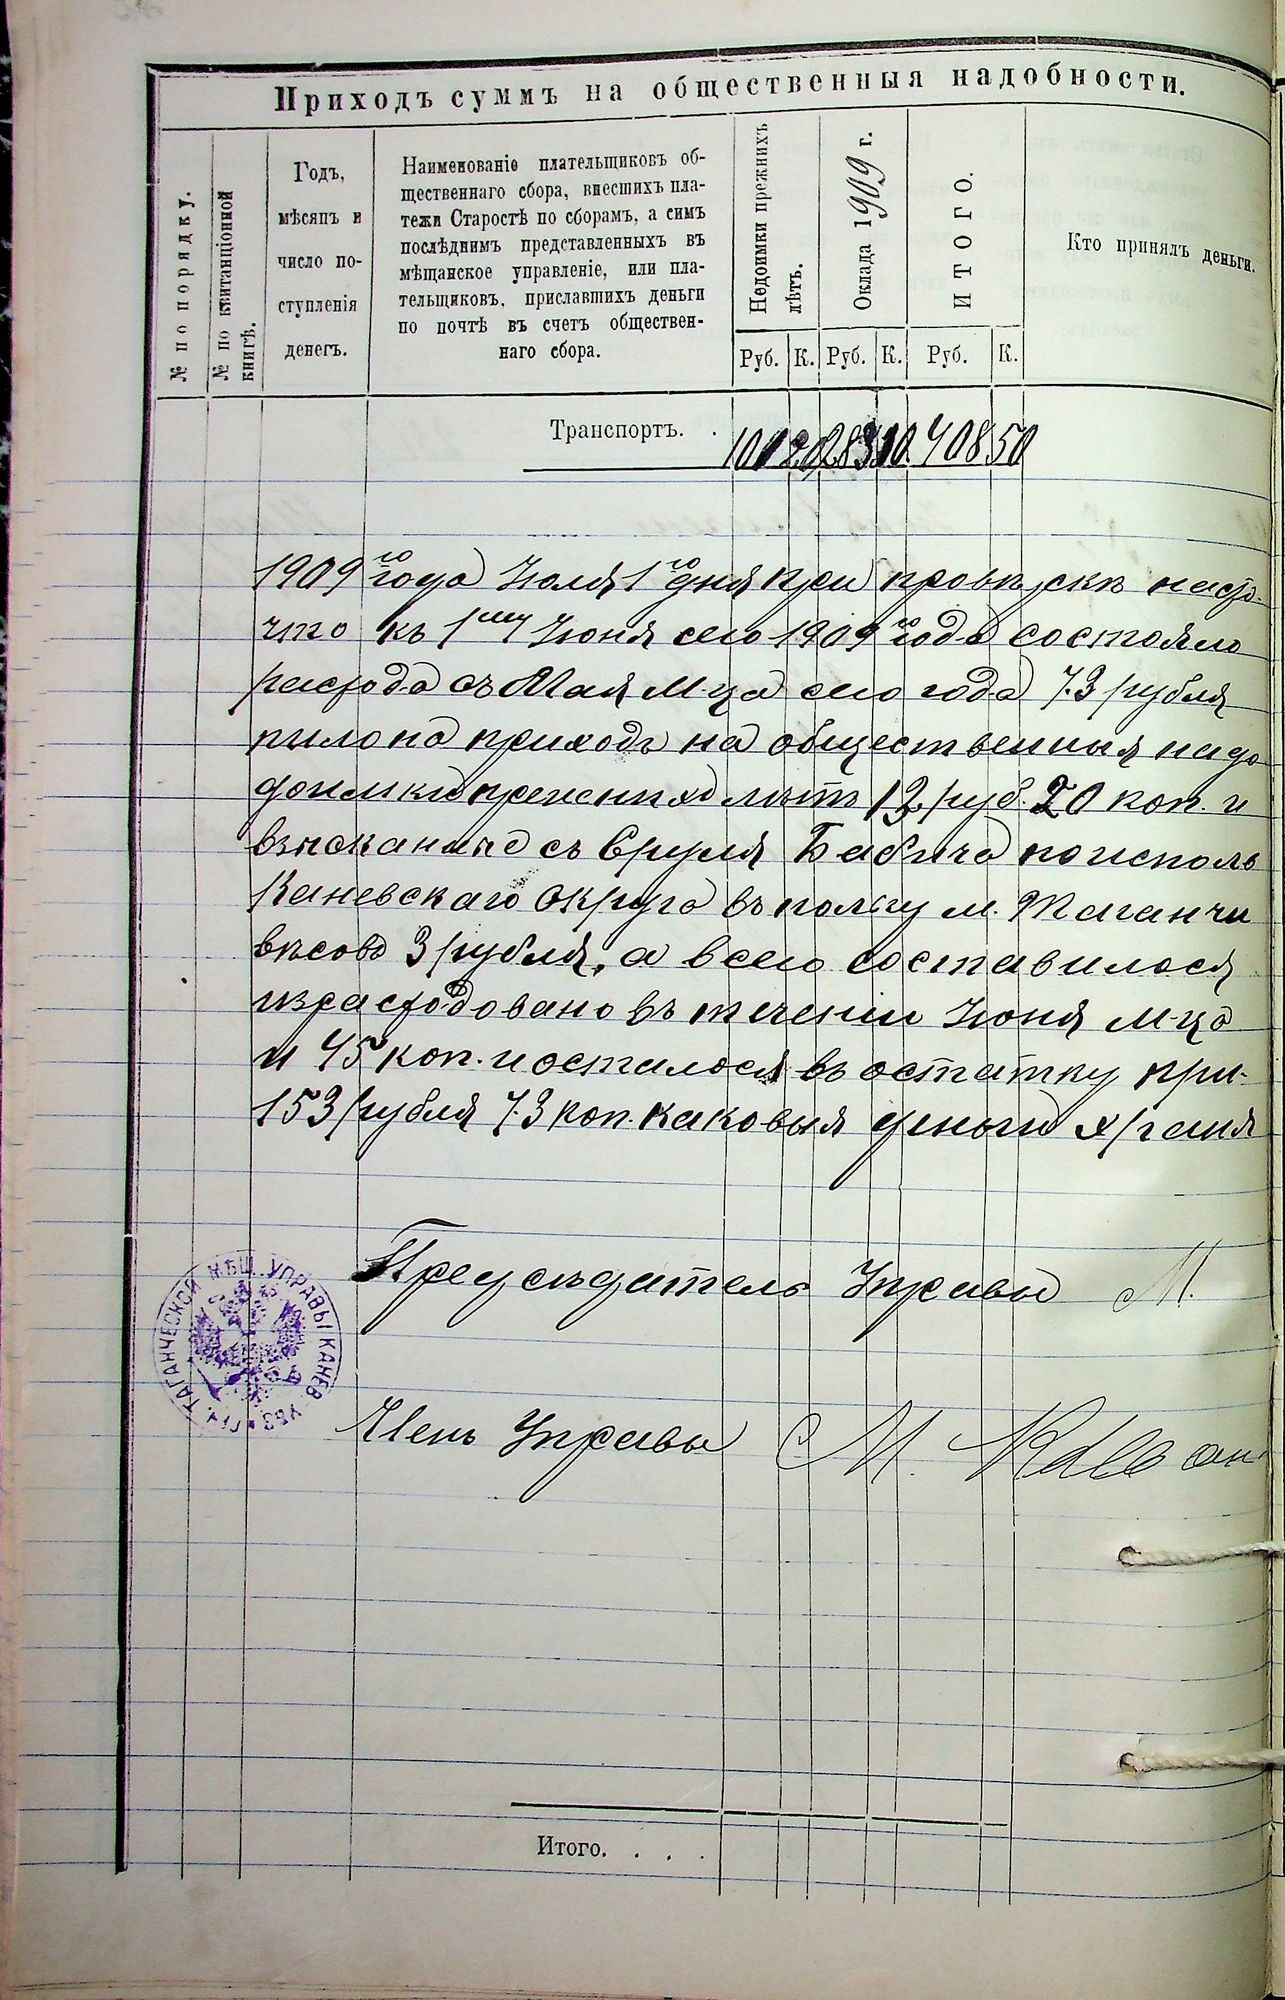 Приходъ суммъ на общественныя надобности.
№ по порядку.
№ по квитанціонной книгѣ.
Годъ, мѣсяцъ и число поступленія денегъ.
Наименованіе плательщиковъ об-
щественнаго сбора, внесшихъ пла-
тежи Старостѣ по сборамъ, а симъ
послѣднимъ представленныхъ въ
мѣщанское управленіе, или пла-
тельщиковъ, приславшихъ деньги
по почтѣ въ счетъ обществен-
наго сбора.
Недоимки прежнихъ лѣтъ.
Оклада 1909 г.
ИТОГО.
Кто принялъ деньги.
Руб. К. Руб. К. Руб. К.
Транспортъ. . 20 283 408 50
1909го года Июля 1го дня при провѣркѣ
что къ 1му Июня сего 1909го года состояло
расхода съ Мая М-ца сего года 73 рубля
пило на приходъ на общественныя надо
доимки прежнихъ лѣтъ 12 руб. 20 коп. и
взыскание съ Сруля Бабича по исполь
Каневскаго округа въ пользу м. Таганчи
вѣсовъ 3 рубля, а всего составилося
израсходовано въ течении Июня М-ца
и 45 коп. и осталося въ остатку при-
153 рубля 73 коп. каковыя деньги храня
Предсѣдатель Управы М.
Членъ Управы М.
ТАГАНЧЕСКОЙ МѢЩ. УПРАВЫ КАНЕВ. УѢЗ.
Итого. . . .